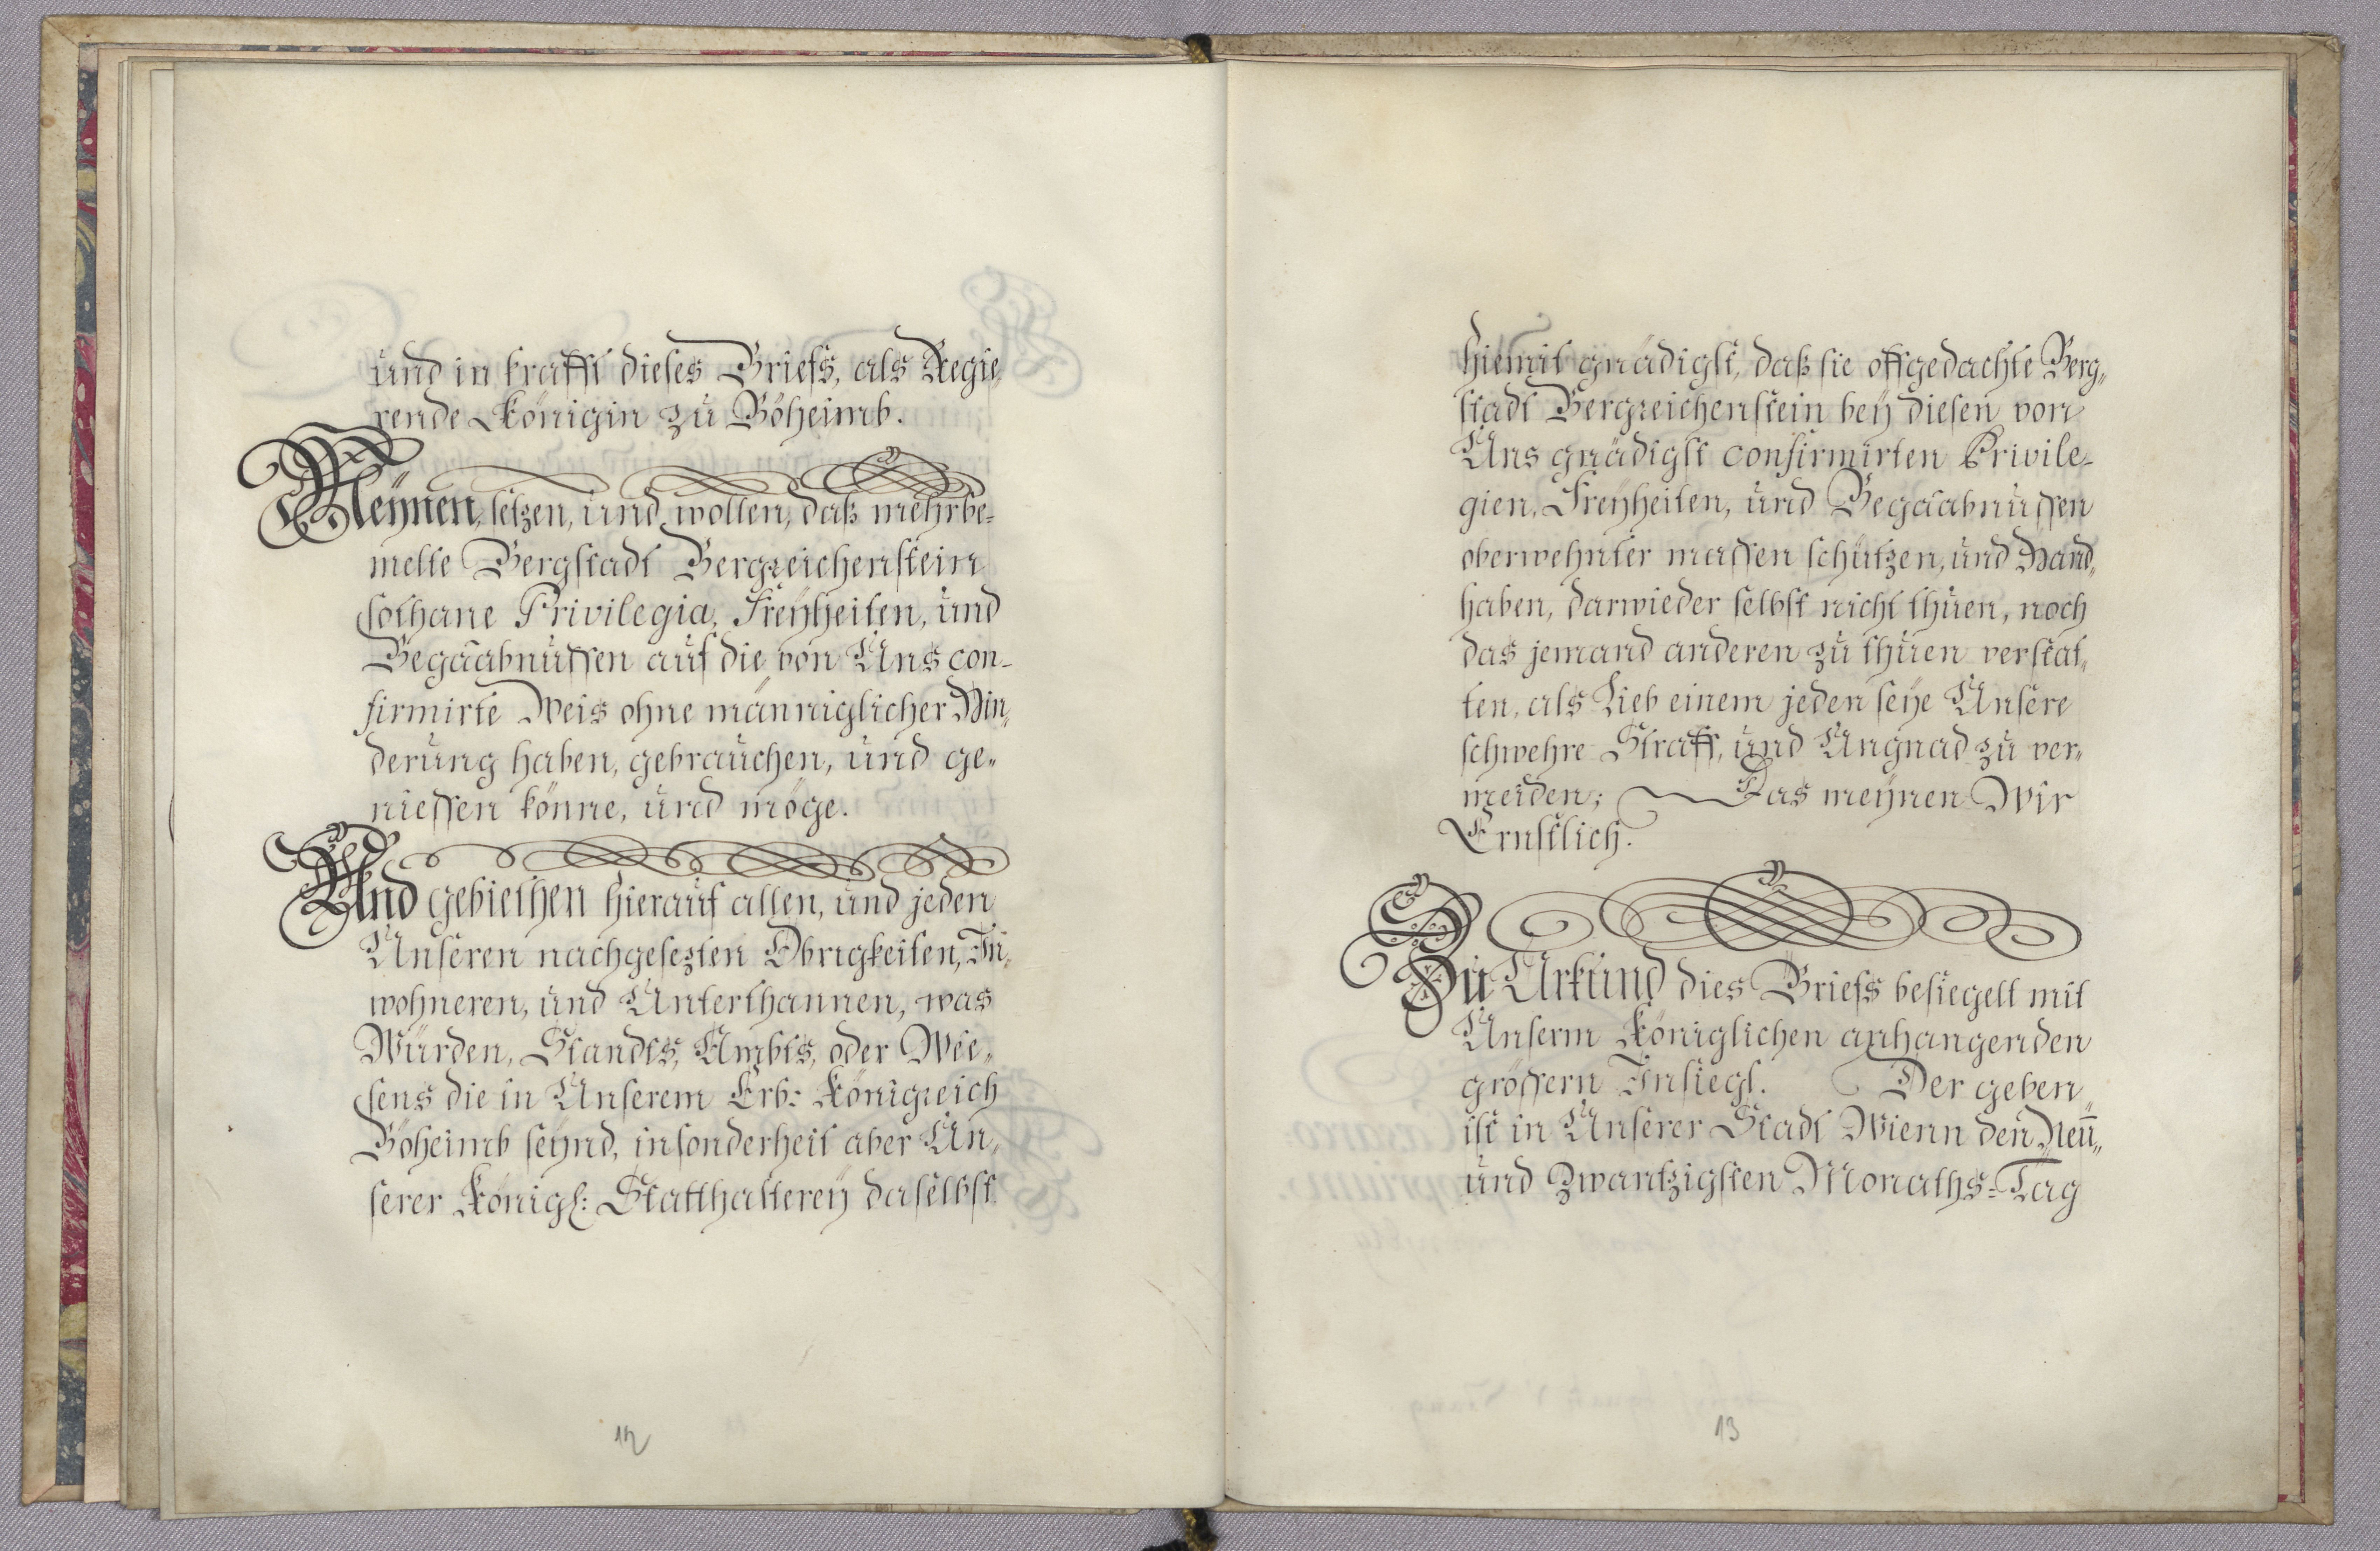 und in krafft dieses Briefs, als Regie„
rende Königin zu Böheimb.
Meÿnen, setzen, und wollen, daß mehrbe-
melte Bergstadt Bergreichenstein
sothane Privilegia, Freÿheiten, und
Begaabnussen auf die von Uns con-
firmirte Weis ohne männiglicher Hin„
derung haben, gebrauchen, und ge„
niessen könne, und möge.
Und gebiethen hierauf allen, und jeden
Unseren nachgesezten Obrigkeiten, In„
wohneren, und Unterthannen, was
Würden, Standts, Ambts, oder Wee„
sens die in Unserem Erb: Königreich
Böheimb seÿnd, insonderheit aber Un„
serer Königl: Statthalterey daselbst
12
hiemit gnädigst, daß sie offgedachte Berg„
stadt Bergreichenstein beÿ diesen von
Uns gnädigst confirmirten Privile-
gien, Freÿheiten, und Begaabnussen
oberwehnter massen schützen, und Hand„
haben, darwieder selbst nicht thuen, noch
das jemand anderen zu thuen verstat„
ten, als Lieb einem jeden seye Unsere
schwehre Straff, und Ungnad zu ver„
meiden; Das meÿnen Wir
Ernstlich.
Zu Urkund dies Briefs besiegelt mit
Unserm Königlichen anhangenden
grössern Insiegl. Der geben
ist in Unserer Stadt Wienn den Neu̅„
und Zwantzigsten Monaths-Tag
13